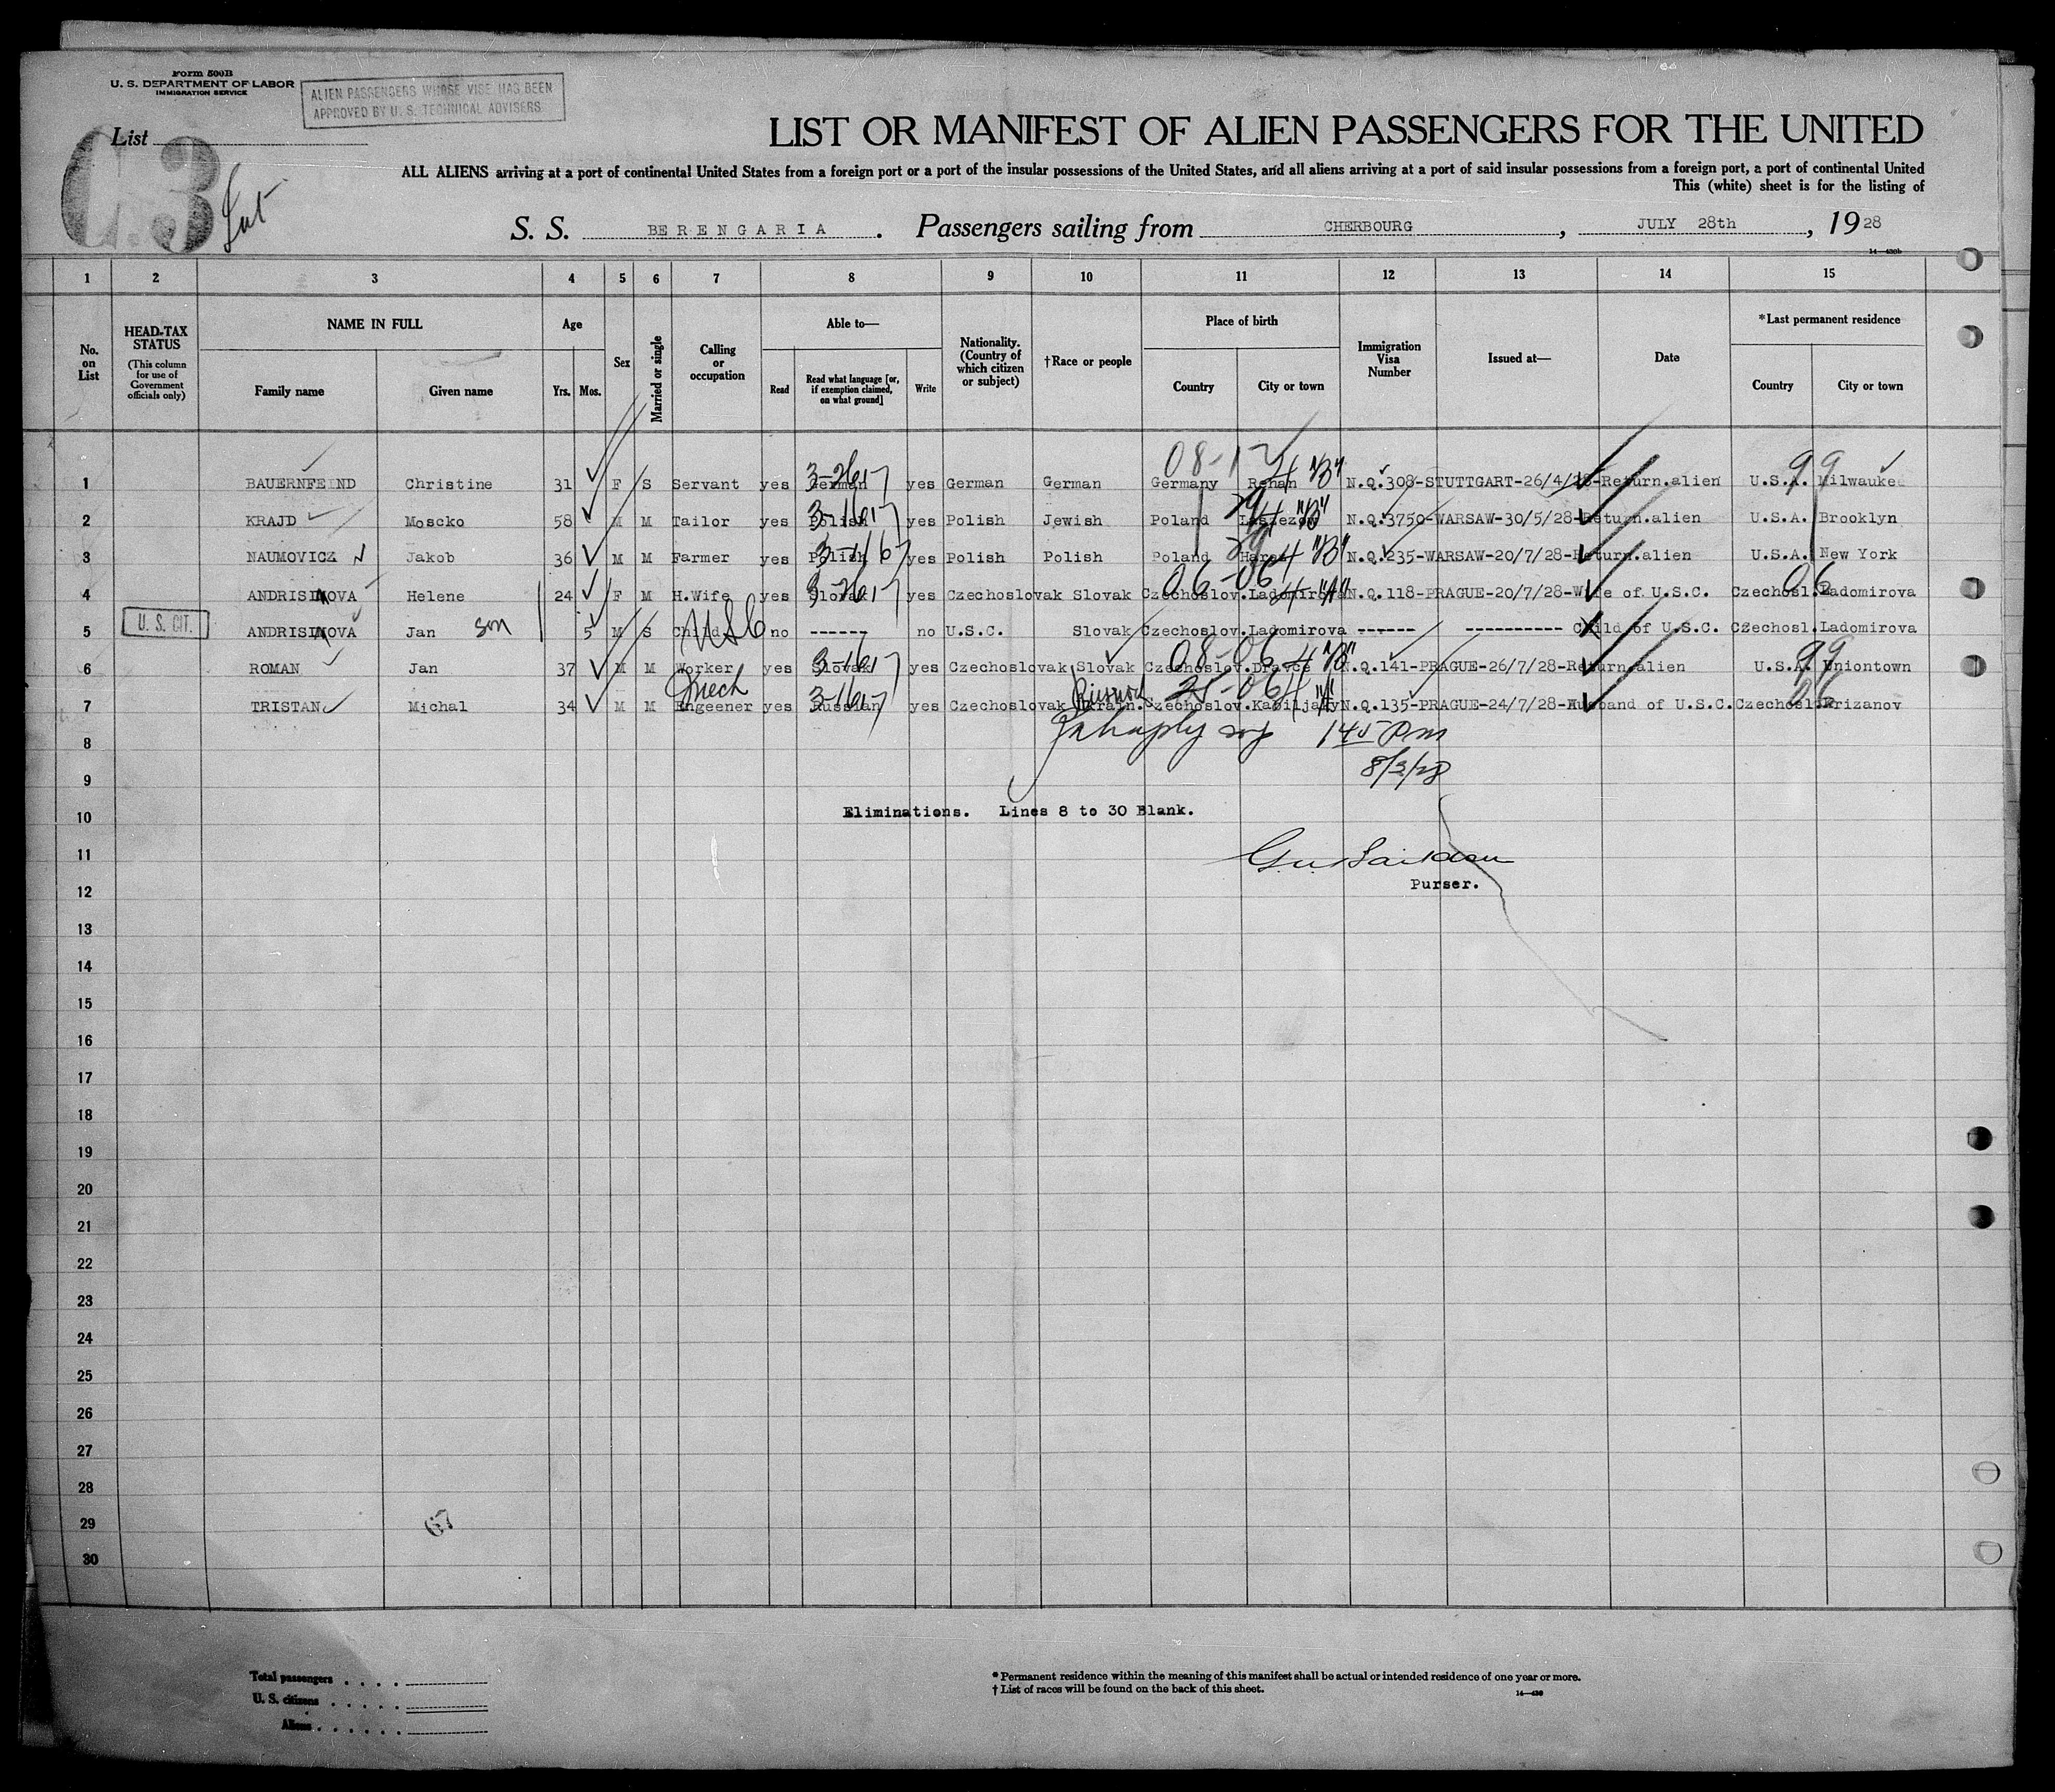 Form 500B
U. S. DEPARTMENT OF LABOR
IMMIGRATION SERVICE
ALIEN PASSENGERS WHOSE VISE HAS BEEN
APPROVED BY U. S. TECHNICAL ADVISERS
List
C.3
LIST OR MANIFEST OF ALIEN PASSENGERS FOR THE UNITED
ALL ALIENS arriving at a port of continental United States from a foreign port or a port of the insular possessions of the United States, and all aliens arriving at a port of said insular possessions from a foreign port, a port of continental United
This (white) sheet is for the listing of
S. S. BERENGARIA. Passengers sailing from CHERBOURG, JULY 28th, 1928
14—430b
1 2 3 4 5 6 7 8 9 10 11 12 13 14 15
No. on List
HEAD-TAX STATUS
(This column for use of Government officials only)
NAME IN FULL
Family name
Given name
Age
Yrs.
Mos.
Sex
Married or single
Calling or occupation
Able to—
Read
Read what language [or, if exemption claimed, on what ground]
Write
Nationality. (Country of which citizen or subject)
†Race or people
Place of birth
Country
City or town
Immigration Visa Number
Issued at—
Date
*Last permanent residence
Country
City or town
08-12
1 BAUERNFEIND Christine 31 F S Servant yes German yes German German Germany Renan 4 "B" N.Q.308-STUTTGART-26/4/28-Return.alien U.S.A. 99 Milwaukee
2 KRAJD Moscko 58 M M Tailor yes Polish yes Polish Jewish Poland 4 "B" N.Q.3750-WARSAW-30/5/28-Return.alien U.S.A. Brooklyn
3 NAUMOVICZ Jakob 36 M M Farmer yes Polish yes Polish Polish Poland 4 "B" N.Q.235-WARSAW-20/7/28-Return.alien U.S.A. New York
06-06 06
4 ANDRISINOVA Helene 24 F M H.Wife yes Slovak yes Czechoslovak Slovak Czechoslov. Ladomirova 4 "A" N.Q.118-PRAGUE-20/7/28-Wife of U.S.C. Czechosl. Ladomirova
U. S. CIT.
5 ANDRISINOVA Jan son 5 M S Child USC no ------ no U.S.C. Slovak Czechoslov. Ladomirova ------ ---------- Child of U.S.C. Czechosl. Ladomirova
08-06 99
6 ROMAN Jan 37 M M Worker yes Slovak yes Czechoslovak Slovak Czechoslov. 4 "B" N.Q.141-PRAGUE-26/7/28-Return.alien U.S.A. Uniontown
Mech
7 TRISTAN Michal 34 M M Engeener yes Russian yes Czechoslovak Ukrain. Czechoslov. N.Q.135-PRAGUE-24/7/28-Husband of U.S.C. Czechosl. Krizanov
145 PM
8
8/3/28
9
Eliminations. Lines 8 to 30 Blank.
10
11
Purser.
12
13
14
15
16
17
18
19
20
21
22
23
24
25
26
27
28
67
29
30
Total passengers
U. S. citizens
Aliens
* Permanent residence within the meaning of this manifest shall be actual or intended residence of one year or more.
† List of races will be found on the back of this sheet.
14—430